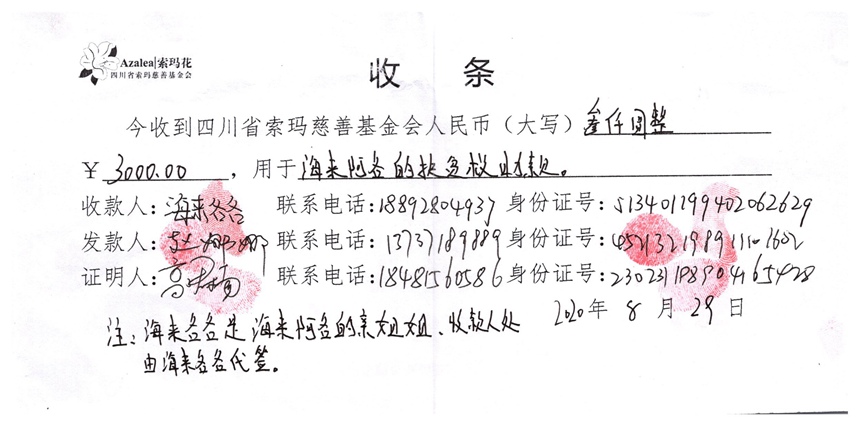 Azalea|索玛花
四川省索玛慈善基金会
收 条
今收到四川省索玛慈善基金会人民币（大写）叁仟圆整
￥3000.00，用于海来阿各的扶贫救助款。
收款人：海来各各 联系电话：18892804937 身份证号：513401199402062629
发款人：赵娜娜 联系电话：13737189889 身份证号：
证明人： 联系电话：18481560586 身份证号：
2020年 8 月 29 日
注：海来各各是海来阿各的亲姐姐、收款人处
由海来各各代签。